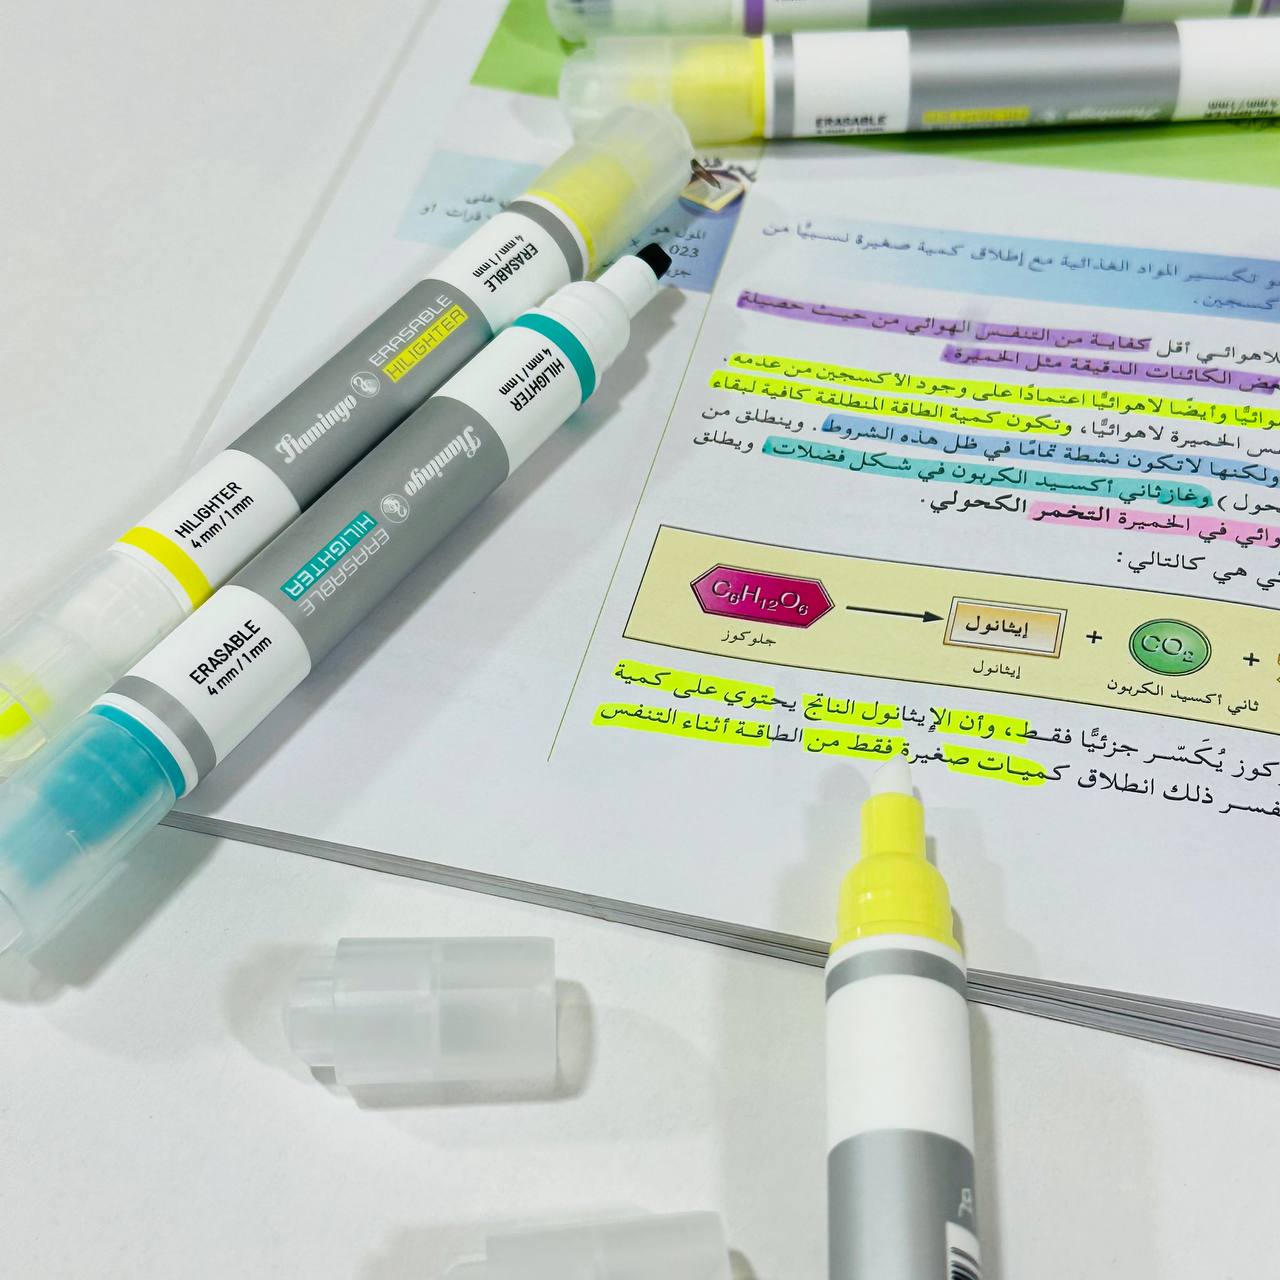 ERASABLE
4 mm / 1 mm
HILIGHTER
Flamingo
ERASABLE
4 mm / 1 mm
ERASABLE
HILIGHTER
Flamingo
HILIGHTER
4 mm / 1 mm
HILIGHTER
4 mm / 1 mm
Flamingo
ERASABLE
HILIGHTER
ERASABLE
4 mm / 1 mm
المول هو
023
تكسير المواد الغذائية مع إطلاق كمية صغيرة نسبيًّا من
كسجين.
للاهوائي أقل كفاية من التنفس الهوائي من حيث حصيلة
الكائنات الدقيقة مثل الخميرة.
وأيضًا لاهوائيًّا اعتمادًا على وجود الأكسجين من عدمه.
الخميرة لاهوائيًّا، وتكون كمية الطاقة المنطلقة كافية لبقاء
ولكنها لاتكون نشطة تمامًا في ظل هذه الشروط. وينطلق من
حول) وغاز ثاني أكسيد الكربون في شكل فضلات، ويطلق
وائي في الخميرة التخمر الكحولي.
ئي هي كالتالي:
C6H12O6
جلوكوز
إيثانول
إيثانول
+
CO2
ثاني أكسيد الكربون
+
كوز يُكَسّر جزئيًّا فقط، وأن الإيثانول الناتج يحتوي على كمية
فسر ذلك انطلاق كميات صغيرة فقط من الطاقة أثناء التنفس